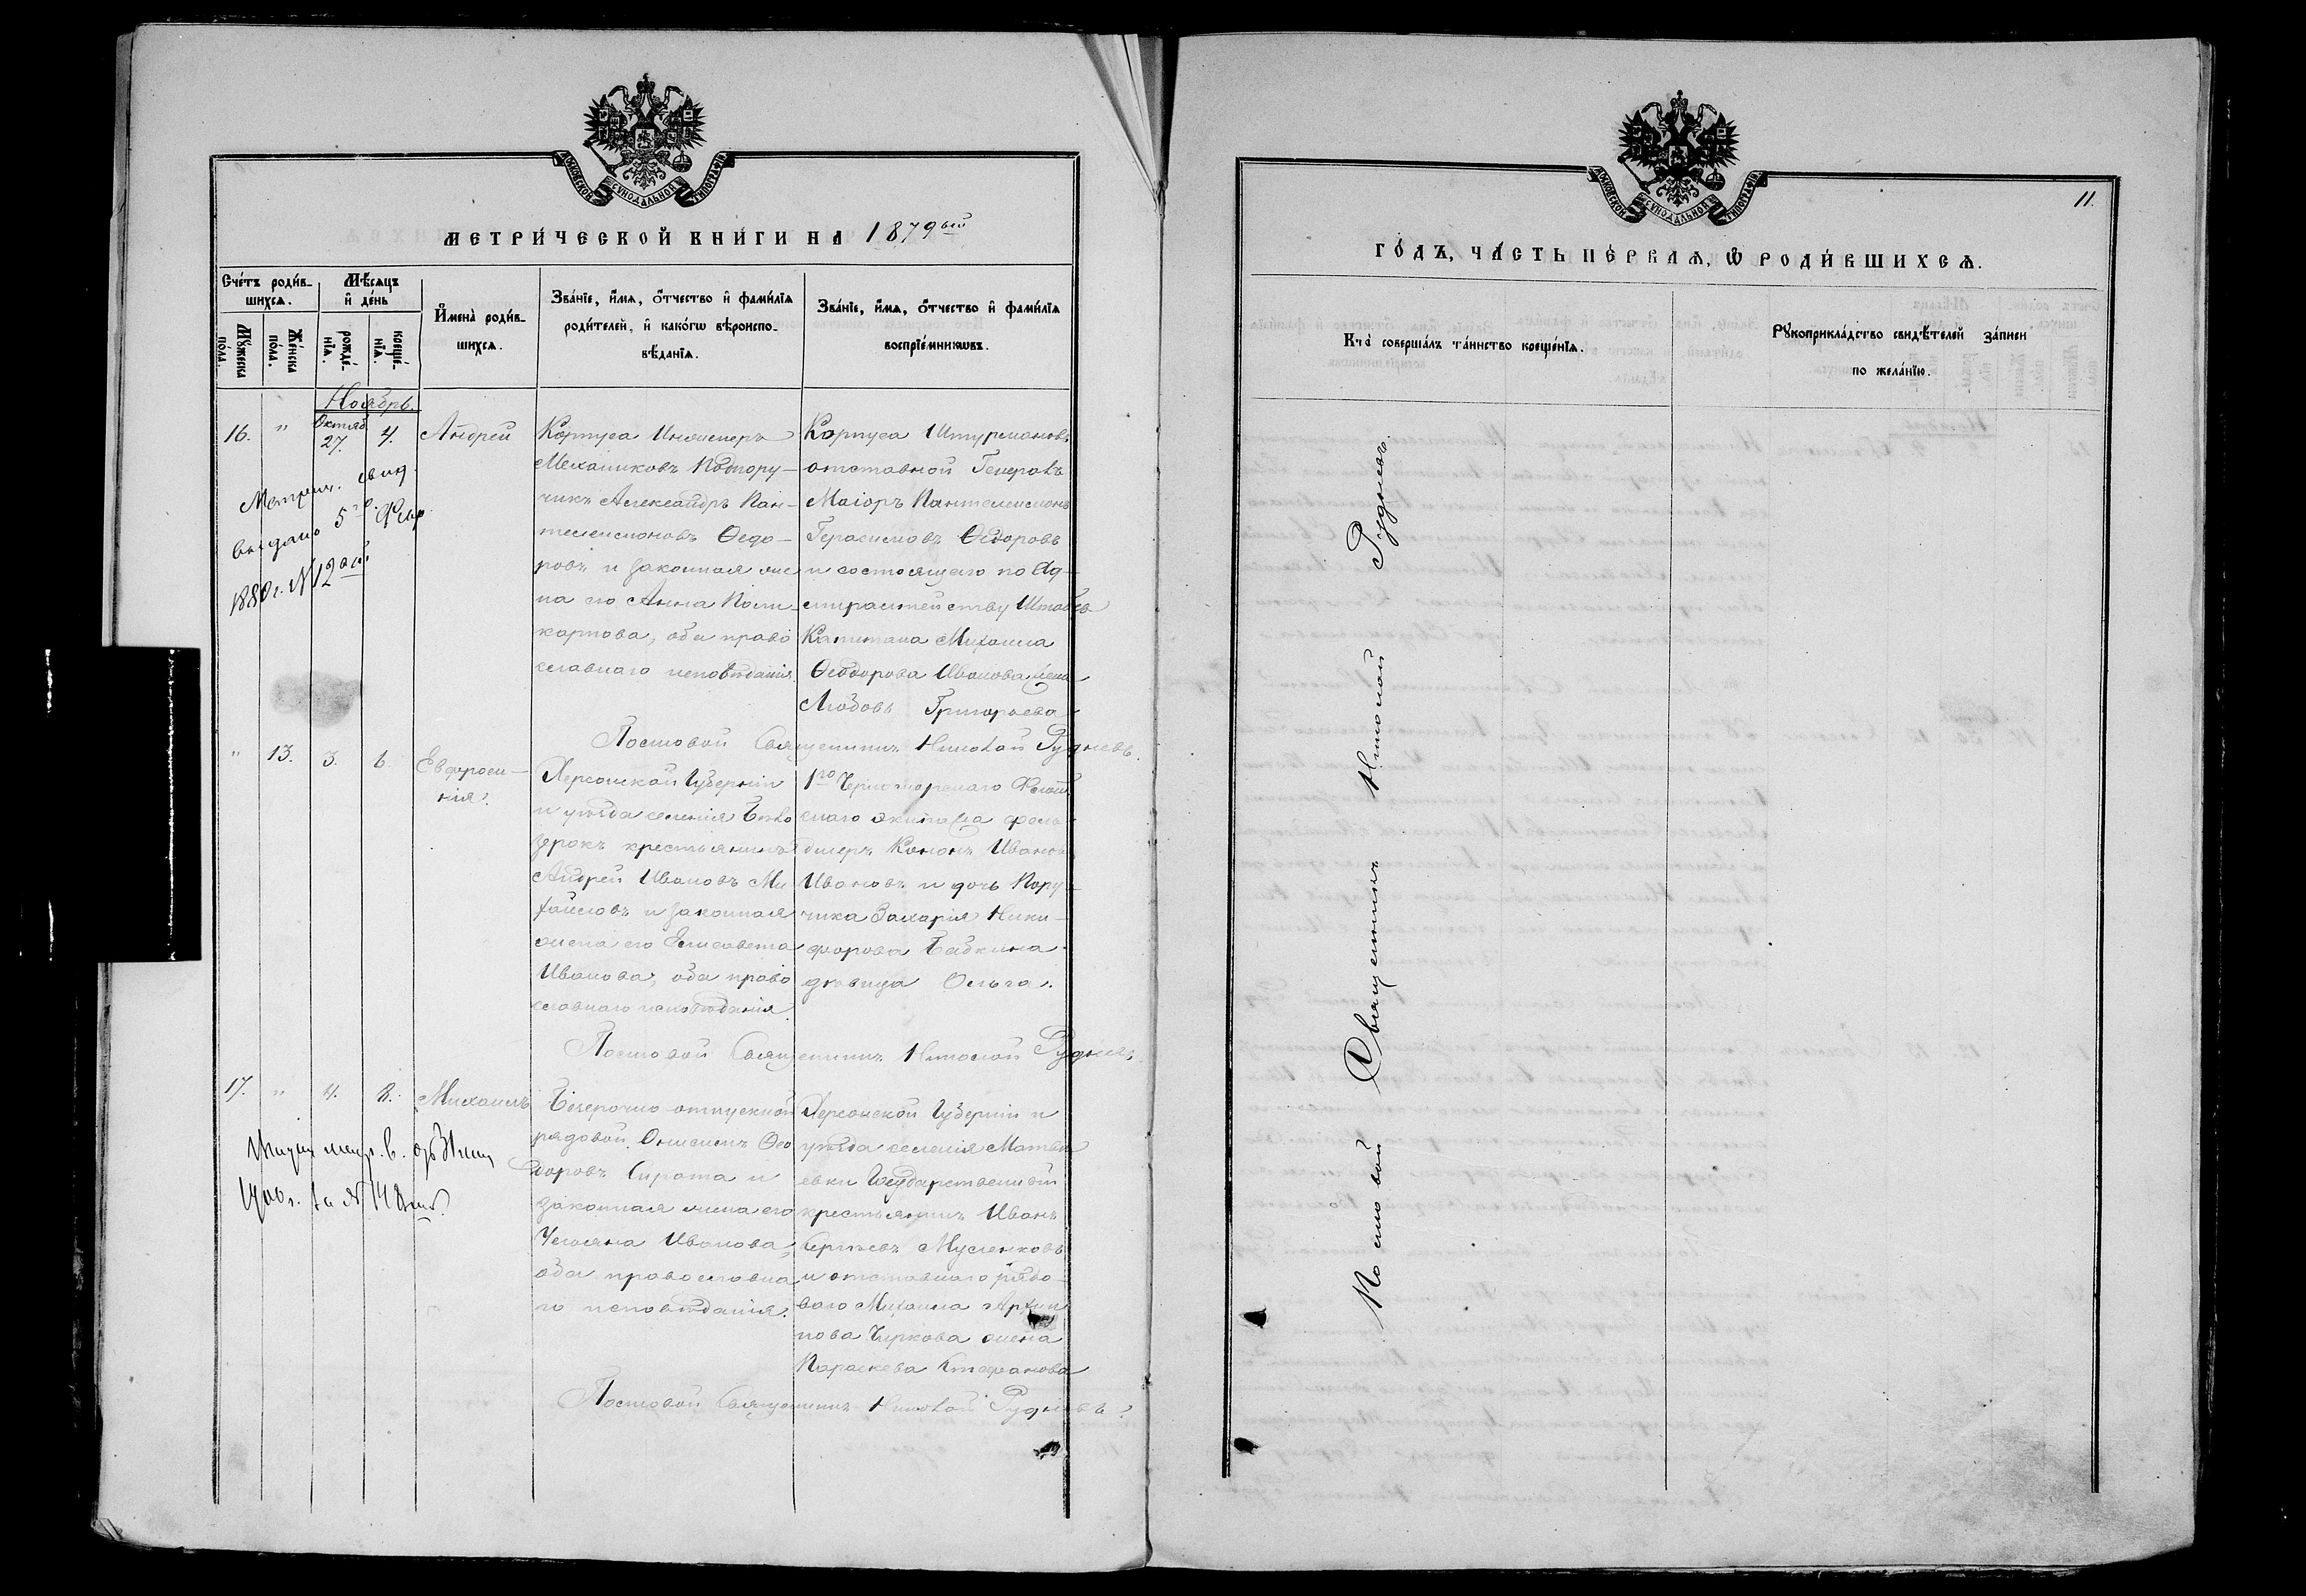 МОСКОВСКОЙ СѴНОДАЛЬНОЙ ТИПОГРАФІИ
МЕТРИ́ЧЕСКОЙ КНИ́ГИ НА 1879ый
Сче́тъ роди́в-
шихсѧ.
Мѣ́сѧцъ
и҆ де́нь
Мꙋ́жеска
по́ла.
Же́нска
по́ла.
рожде́-
нїѧ.
креще́-
нїѧ.
И҆мена̀ роди́в-
шихсѧ.
Зва́нїе, и҆́мѧ, ѻ҆́тчество и҆ фами́лїѧ
роди́телей, и҆ како́гѡ вѣроиспо-
вѣ́данїѧ.
Зва́нїе, и҆́мѧ, ѻ҆́тчество и҆ фами́лїѧ
воспрїе́мникѡвъ.
Ноябрь.
16. " Октяб 27. 4. Андрей
Корпуса Инженеръ
Механиковъ Подпору-
чикъ Александръ Пан-
телеимоновъ Ѳедо-
ровъ и законная же
на его Анна Поли-
карпова, оба право
славнаго исповѣданія.
Корпуса Штурмановъ
отставной Генералъ
Маіоръ Пантелеимонъ
Герасимовъ Ѳедоровъ
и состоящаго по Ад-
миралтейству Штабсъ
Капитана Михаила
Ѳеодорова Иванова жена
Любовь Григорьева
Метрич. свид.
выдано 5го Февр.
1880 г. № 12
Постовой Священникъ Николай Рудневъ.
" 13. 3. 6. Евфроси-
нія.
Херсонской Губерніи
и уѣзда селенія Бѣло
зерокъ крестьянинъ
Андрей Ивановъ Ми
хайловъ и законная
жена его Елисавета
Иванова, оба право
славнаго исповѣданія.
1го Черноморскаго Флот
скаго экипажа фельд
Ивановъ и дочь Пору-
чика Захарія Ники-
форова Бабкина
дѣвица Ольга.
Постовой Священникъ Николай Рудневъ.
17. " 4. 8. Михаилъ
Безсрочно-отпускной
рядовой Онисимъ Ѳео
доровъ Сирота и
законная жена его
Ульяна Иванова,
оба православна
го исповѣданія.
Херсонской Губерніи и
уѣзда селенія Матвѣ
евки Государственный
крестьянинъ Иванъ
Сергѣевъ Мусіенковъ
и отставнаго рядо-
ваго Михаила Архип
пова Чиркова жена
Параскева Стефанова
1900 г. за № 148
Постовой Священникъ Николай Рудневъ.
МОСКОВСКОЙ СѴНОДАЛЬНОЙ ТИПОГРАФІИ
11.
ГО́ДЪ, ЧА́СТЬ ПЕ́РВАѦ, Ѡ҆ РОДИ́ВШИХСѦ.
Кто̀ соверша́лъ та́инство креще́нїѧ.
Рꙋкоприкла́дство свидѣ́телей за́писи
по жела́нїю.
Постовой Священникъ Николай Рудневъ.